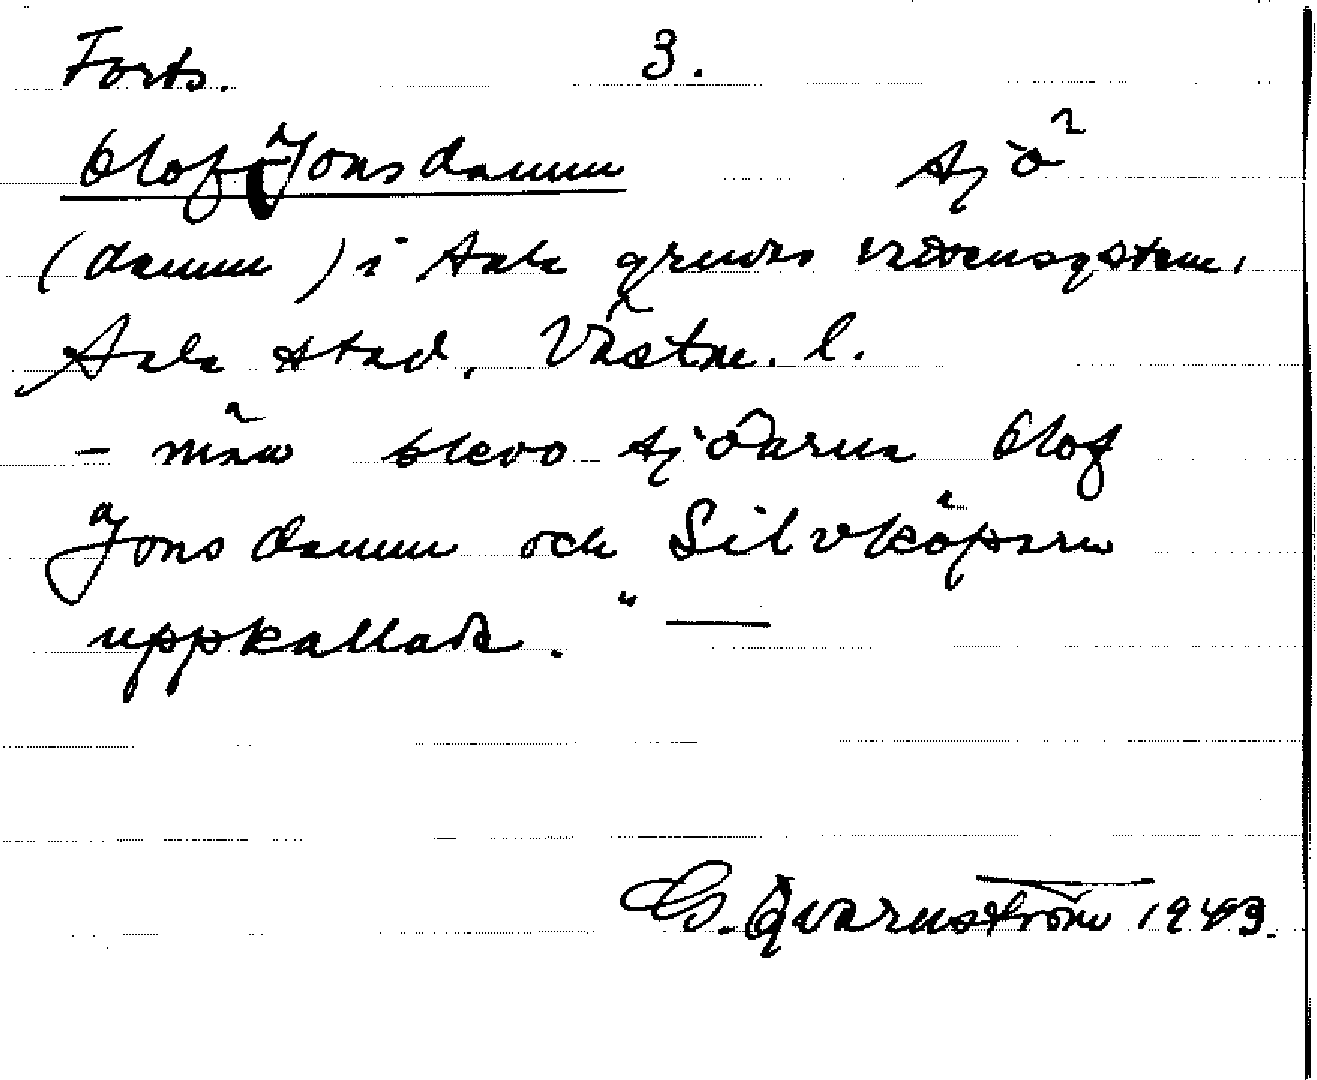 Forts. 3.
Olof Jons damm sjö
(damm) i Sala gruvas vattensystem,
Sala stad, Västm. l.
– män blevo sjöarna Olof
Jons damm och Silvköparn
uppkallade." —
G. Qvarnström 1943.